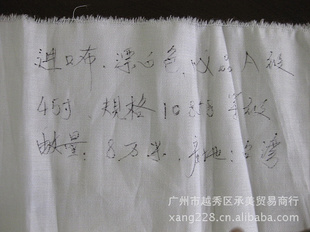 进口布、漂白色、以为A级
45寸、规格10888等级
数量:8万米、产地:台湾
广州市越秀区承美贸易商行
xang228.cn.alibaba.com